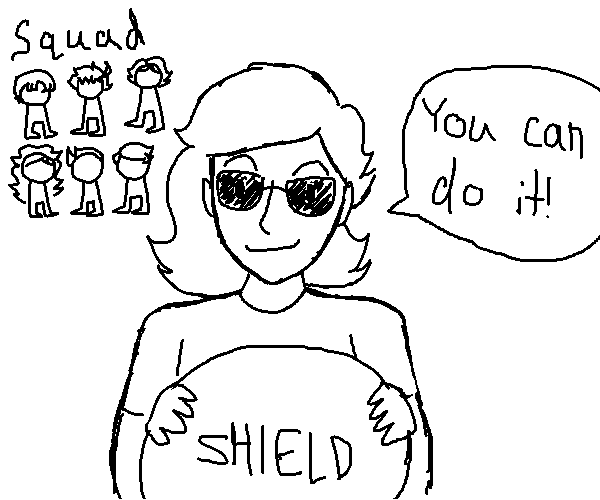 Squad
You can
do it!
SHIELD